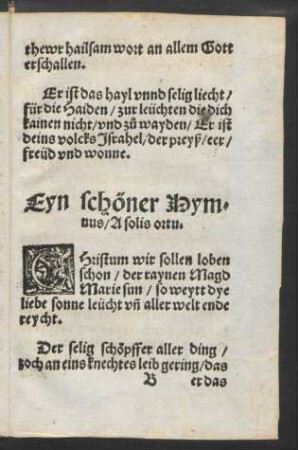 thewr hailsam wort an allem Gott
erschallen.
Er ist das hayl vnnd selig liecht /
für die Haiden / zur leüchten die dich
kainen nicht / vnd zů wayden / Er ist
deins volcks Israhel / der preyß / eer /
freüd vnd wonne.
Eyn schöner Hym-
nus / A solis ortu.
CHristum wir sollen loben
schon / der raynen Magd
Marie sun / so weytt dye
liebe sonne leücht vñ aller welt ende
reycht.
Der selig schöpffer aller ding /
zoch an eins knechtes leib gering / das
B er das